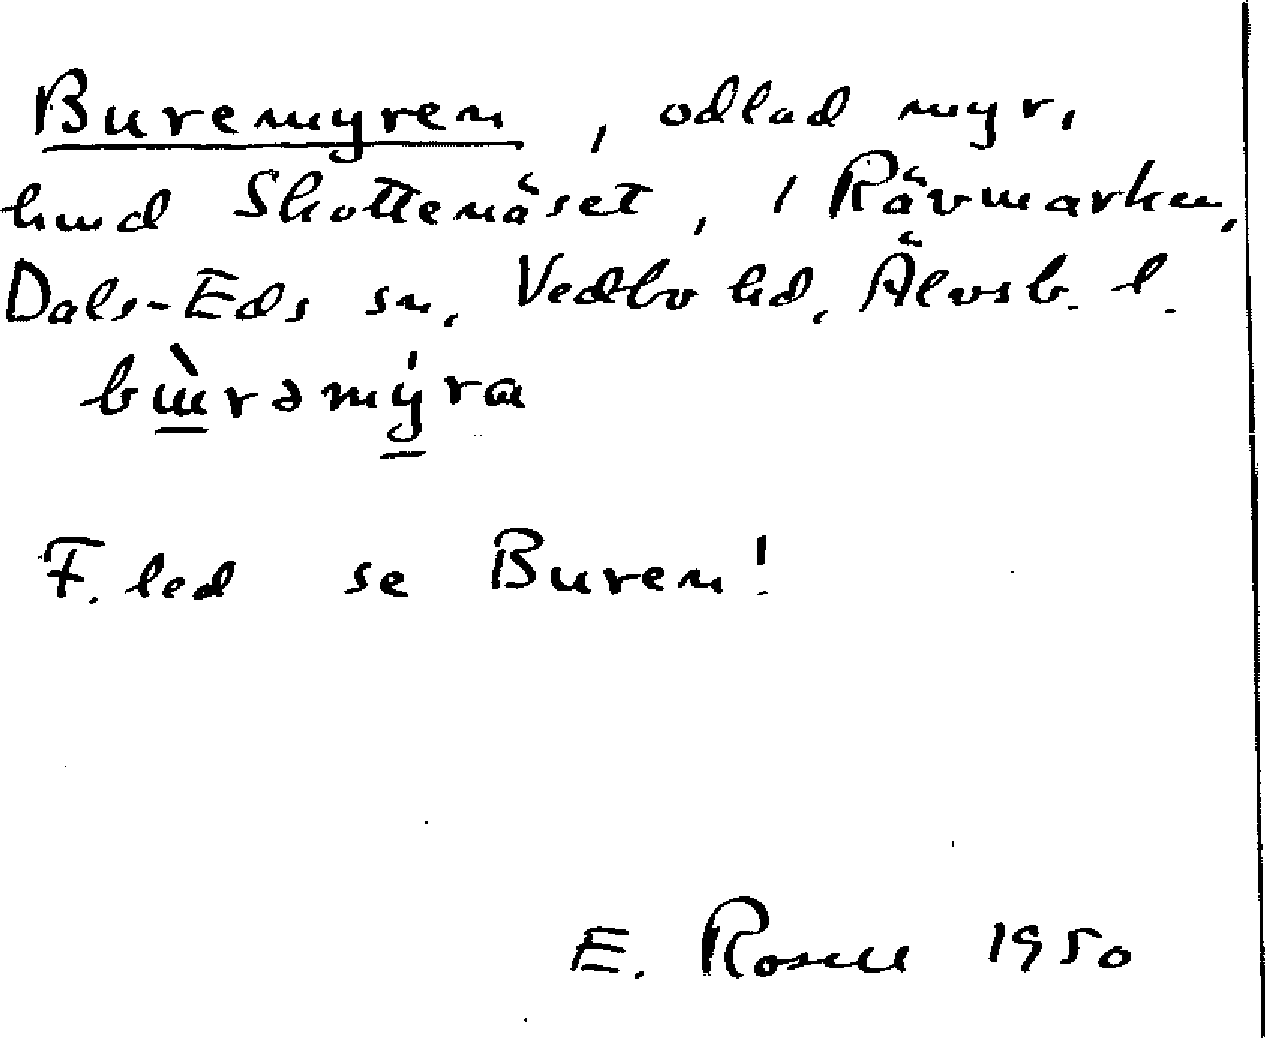 Buremyren, odlad myr,
hmd Skottenäset, i Rävmarken,
Dals-Eds sn, Vedbo hd, Älvsb. l.
bɯ̀rəmýra
F. led se Buren!
E. Rosell 1950